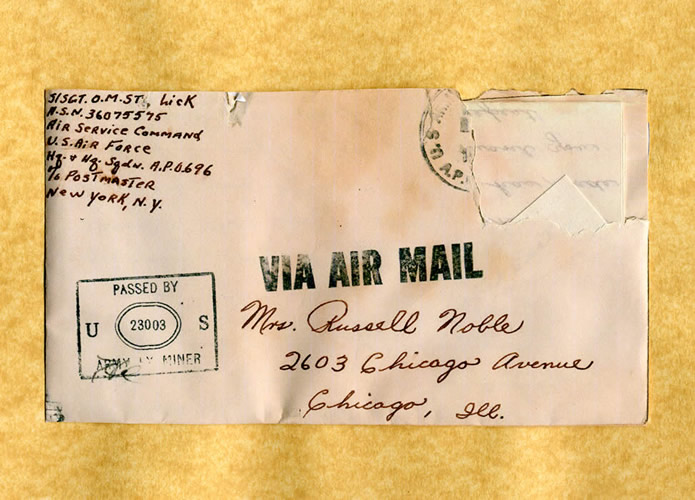 S/SGT. O.M.ST, Lick
A.S.N. 36075575
Air Service Command
U.S. Air Force
Hq. & Hq. Sqdn. A.P.O. 696
℅ POSTMASTER
New York, N.Y.
U.S.
A.P.
VIA AIR MAIL
PASSED BY
U 23003 S
ARMY MINER
Mrs. Russell Noble
2603 Chicago Avenue
Chicago, Ill.